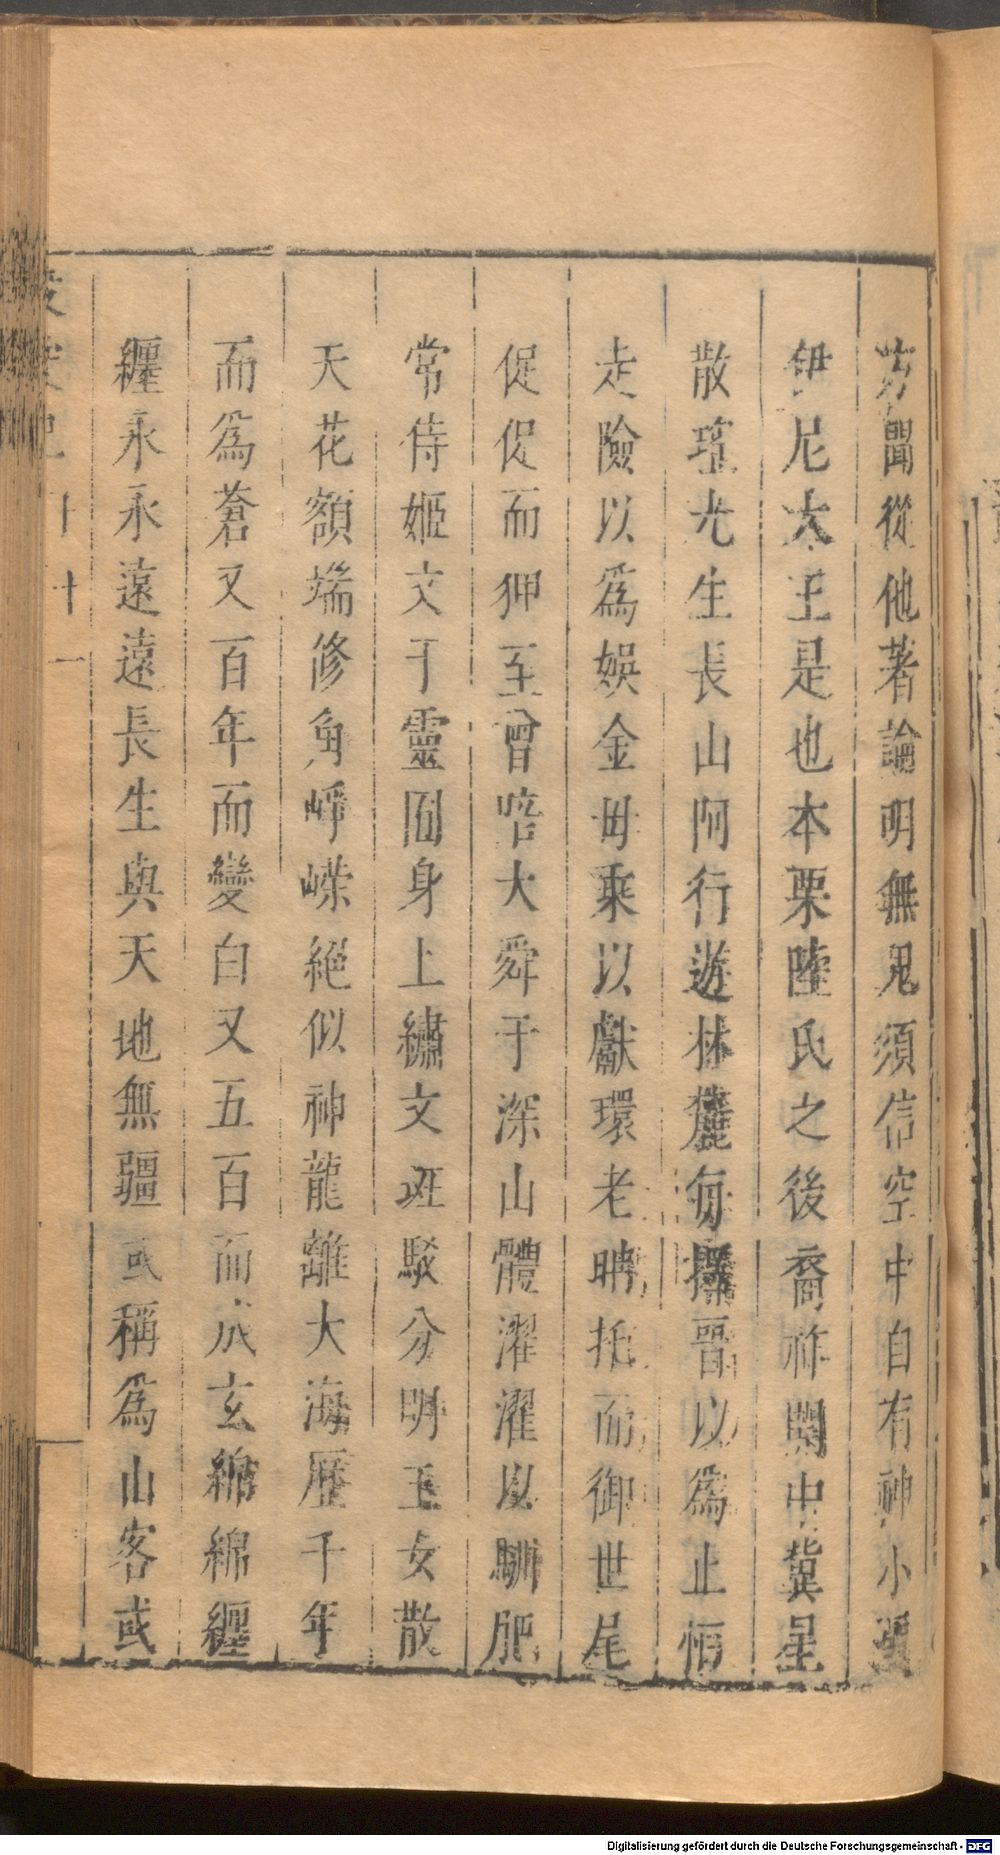 方聞從他著論明無鬼須信空中自有神小
伊尼大王是也本栗陸氏之後裔祚關中冀星
散瑤光生長山阿行遊林麓每擇音以為止恒
走險以為娛金母乘以獻環老聃托而御世尾
促促而狎至曾啗大舜于深山體濯濯以馴肥
常侍姬文于靈囿身上繡文斑駁分明玉女散
天花額端修角崢嶸絕似神龍離大海歷千年
而為蒼又百年而變白又五百而成玄綿綿纏
纏永永遠遠長生與天地無疆或稱為山客或
十 十一
Digitalisierung gefördert durch die Deutsche Forschungsgemeinschaft - DFG